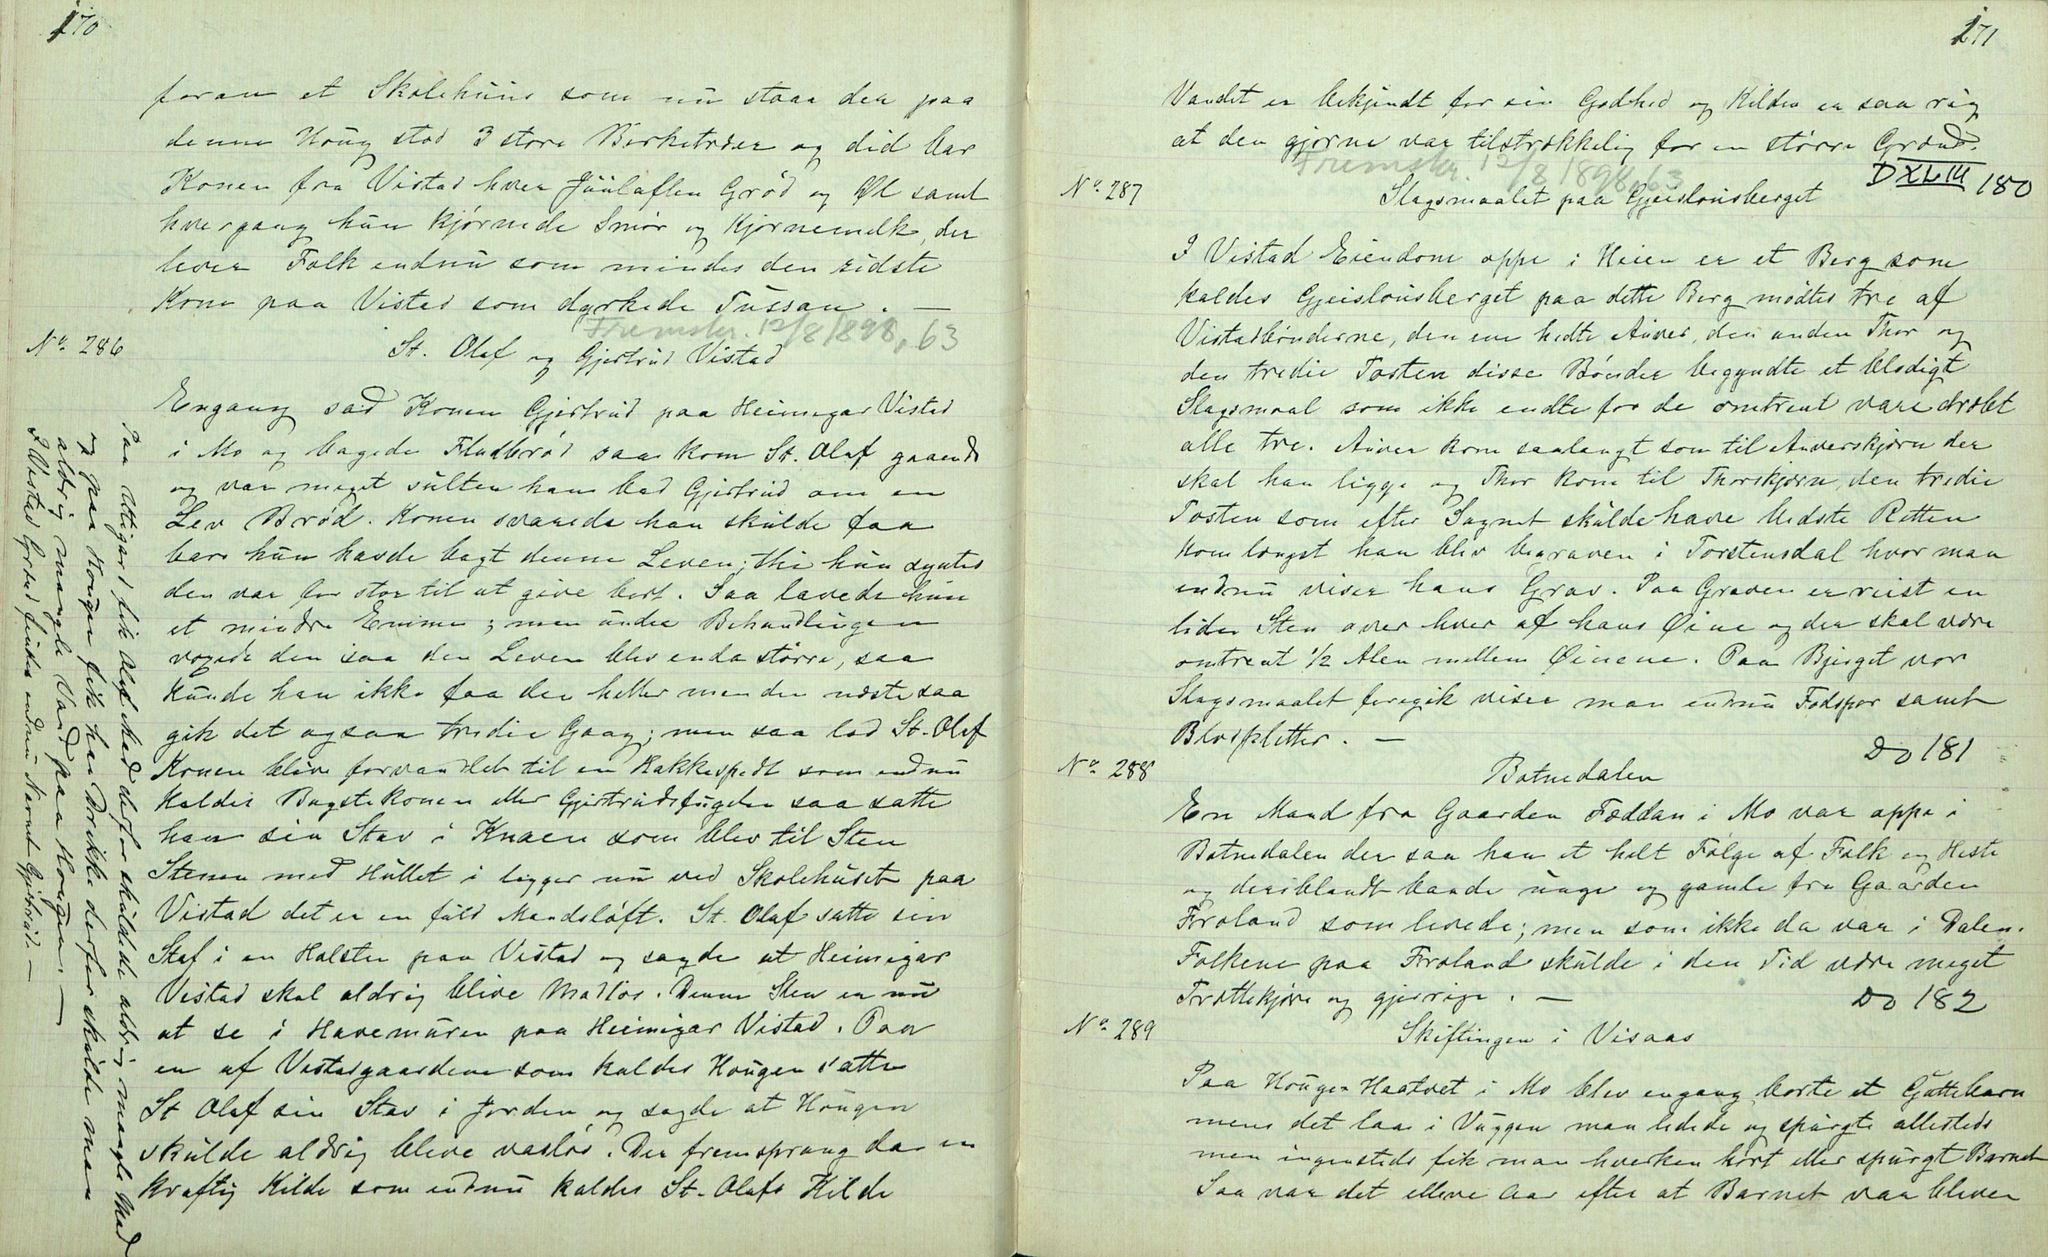 170
foran et Skolehuus som nu staar der paa
denne Houg stod 3 store Birketræer og did bar
Konen fra Vistad hver Juulaften Grød og Øl samt
hvergang hun kjørnede Smør og Kjørnemelk, der
lever Folk endnu som mindes den sidste
Kone paa Vistad som dyrkede Tussan. —
Fremskr. 12/8 1898, 63
No. 286
St. Olaf og Gjertrud Vistad
Engang sad Konen Gjertrud paa Heimegar Vistad
i Mo og bagede Fladbrød saa kom St. Olaf gaaende
og var meget sulten han bad Gjertrud om en
Lev Brød. Konen svarede han skulde faa
bare hun havde bagt denne Leven; thi hun syntes
den var for stor til at give bort. Saa lavede hun
et mindre Emne; men under Behandlingen
voxede den saa den Leven blev enda større, saa
kunde han ikke faa den heller men den næste saa
gik det ogsaa tredie Gang; men saa lod St. Olaf
Konen blive forvandlet til en Hakkespedt som endnu
kaldes Bagstekonen eller Gjertrudsfuglen saa satte
han sin Stav i Knaen som blev til Sten
Stenen med Hullet i ligger nu ved Skolehuset paa
Vistad det er en fuld Mandsløft. St. Olaf satte sin
Staf i en Halsten paa Vistad og sagde at Heimigar
Vistad skal aldrig blive Madløs. Denne Sten er nu
at se i Havemuren paa Heimigar Vistad. Paa
en af Vistadgaardene som kaldes Hougen satte
St Olaf sin Stav i Jorden og sagde at Hougen
skulde aldrig blive vasløs. Der fremsprang da en
kraftig Kilde som endnu kaldes St. Olafs Kilde
Paa Utigard fik Olaf Mad derfor skulde de aldrig mangle Mad
og paa Hougen fik han Drikke derfor skulde man
aldrig mangle Vand paa Hougen. —
I Vistad Gaard findes endnu Navnet Gjertrud. —
171
Vandet er bekjendt for sin Godhed og Kilden er saa rig
at den gjerne var tilstrækkelig for en større Grænd.
Fremskr. 12/8 1898, 63
DXLIII 180
No. 287
Slagsmaalet paa Gjeislousberget
I Vistad Eiendom oppe i Heien er et Berg som
kaldes Gjeislousberget paa dette Berg mødtes tre af
Vistadbønderne, den ene hedte Anver, den anden Thor og
den tredie Tosten disse Bønder begyndte et blodigt
Slagsmaal som ikke endte før de omtrent vare dræbt
alle tre. Anver kom saalangt som til Anverskjørn der
skal han ligge og Thor kom til Thorskjørn, den tredie
Tosten som efter Sagnet skulde have bedste Retten
kom længst han blev begraven i Torstensdal hvor man
endnu viser hans Grav. Paa Graven er reist en
liden Sten over hver af hans Øine og der skal være
omtrent 1/2 Alen mellem Øinene. Paa Bjerget vor
Slagsmaalet foregik viser man endnu Fodspor samt
Blodpletter. —
Do 181
No. 288
Botnedalen
En Mand fra Gaarden Fæddan i Mo var oppe i
Botnedalen der saa han et helt Følge af Folk og Heste
og deriblandt baade unge og gamle fra Gaarden
Froland som levede; men som ikke da var i Dalen.
Folkene paa Froland skulde i den Tid være meget
Trættekjøre og gjerrige. —
Do 182
No. 289
Skiftingen i Visaas
Paa Hougen Haatvet i Mo blev engang borte et Guttebarn
mens det laa i Vuggen man ledede og spurgte allesteds
men ingensteds fik man hverken hørt eller spurgt Barnet
Saa var det elleve Aar efter at Barnet var bleven